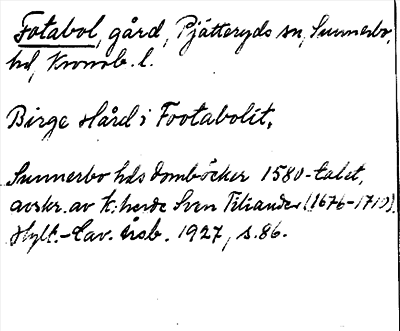 Fotabol, gård, Pjätteryds sn, Sunnerbo
hd, Kronob. l.
Birge Hård i Footabolit,
Sunnerbo hds domböcker 1580-talet,
avskr. av k:herde Sven Tiliander (1676-1710).
Hylt.-Cav. årsb. 1927, s. 86.